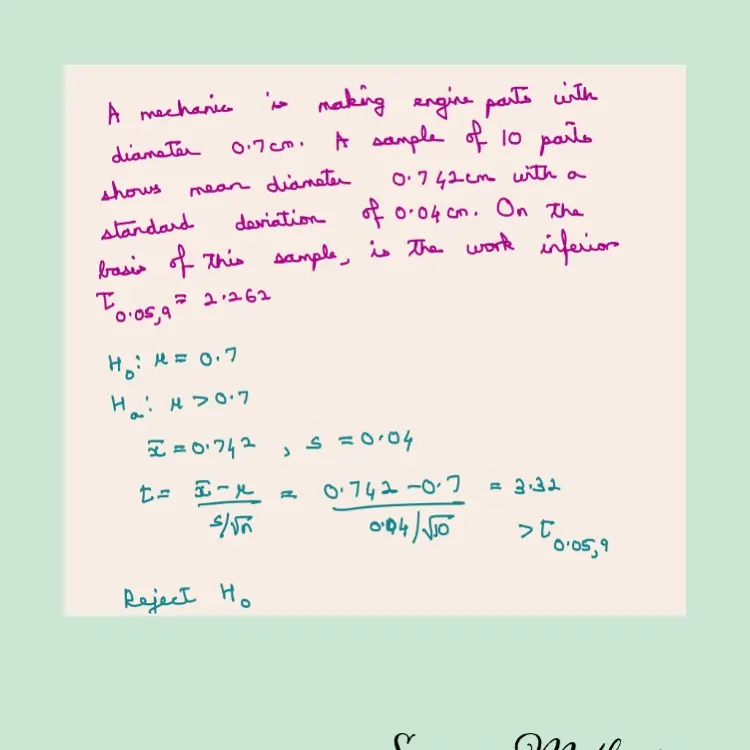 A mechanic is making engine parts with
diameter 0.7cm. A sample of 10 parts
shows mean diameter 0.742cm with a
standard deviation of 0.04cm. On the
basis of this sample, is the work inferior
t0.05,9 = 2.262
H0: μ = 0.7
Ha: μ > 0.7
x̄ = 0.742 , s = 0.04
t = x̄-μ / s/√n = 0.742-0.7 / 0.04/√10 = 3.32
> t0.05,9
Reject H0